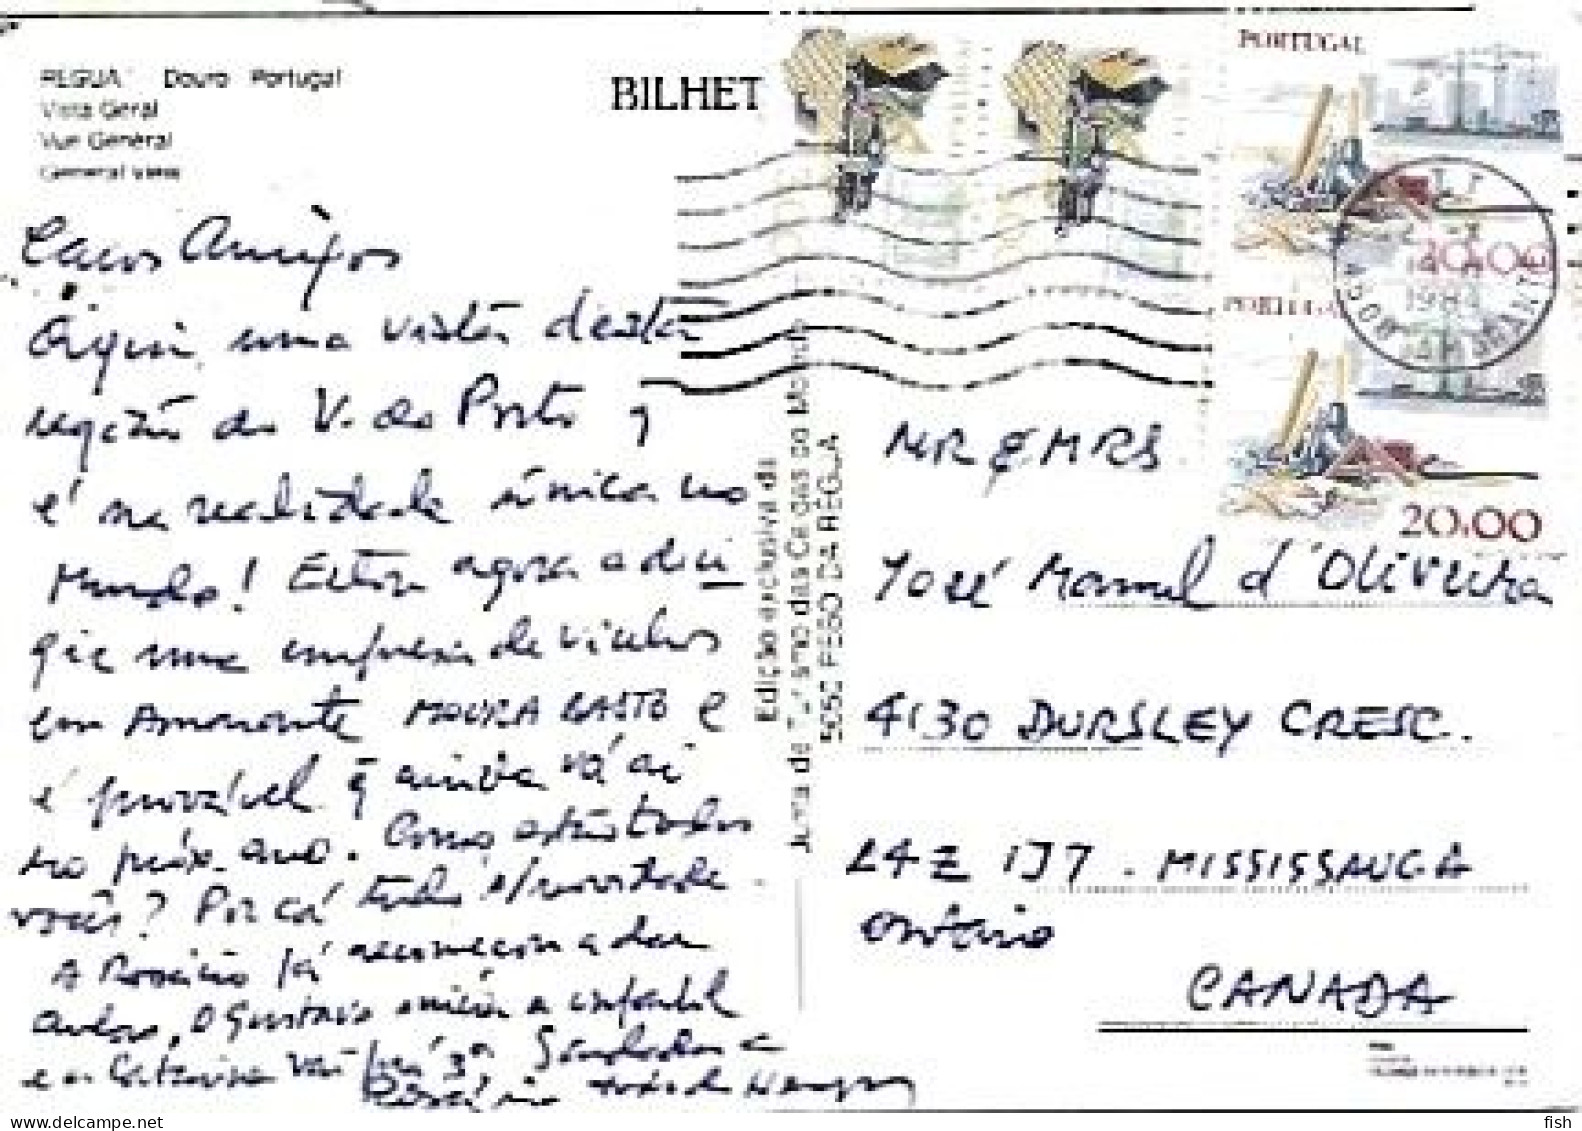 REGUA Douro Portugal
Vista Geral
Vue Général
General view
BILHET
PORTUGAL
20.00
1984
PORTUGAL
20.00
Caros Amigos
Aqui, uma vista desta
região do V. do Porto,
é na realidade única no
Mundo! Estou agora a diri
gir uma empresa de vinhos
em Amarante MOURA BASTO e
é provável q ainda vá aí
no próx. ano. Como estão todos
vocês? Por cá tudo s/novidade.
A Rosário já recomeçou a dar
aulas, o Gustavo inicia a infantil
e a Catarina vai p/ra 3ª. Saudades
Rosário
Edição exclusiva da
Junta de Turismo das Caldas do Moledo
5050 PESO DA RÉGUA
MR & MRS
José Manuel d'Oliveira
4130 DURSLEY CRESC.
L4Z 1J7 - MISSISSAUGA
Ontario
CANADA
www.delcampe.net
fish